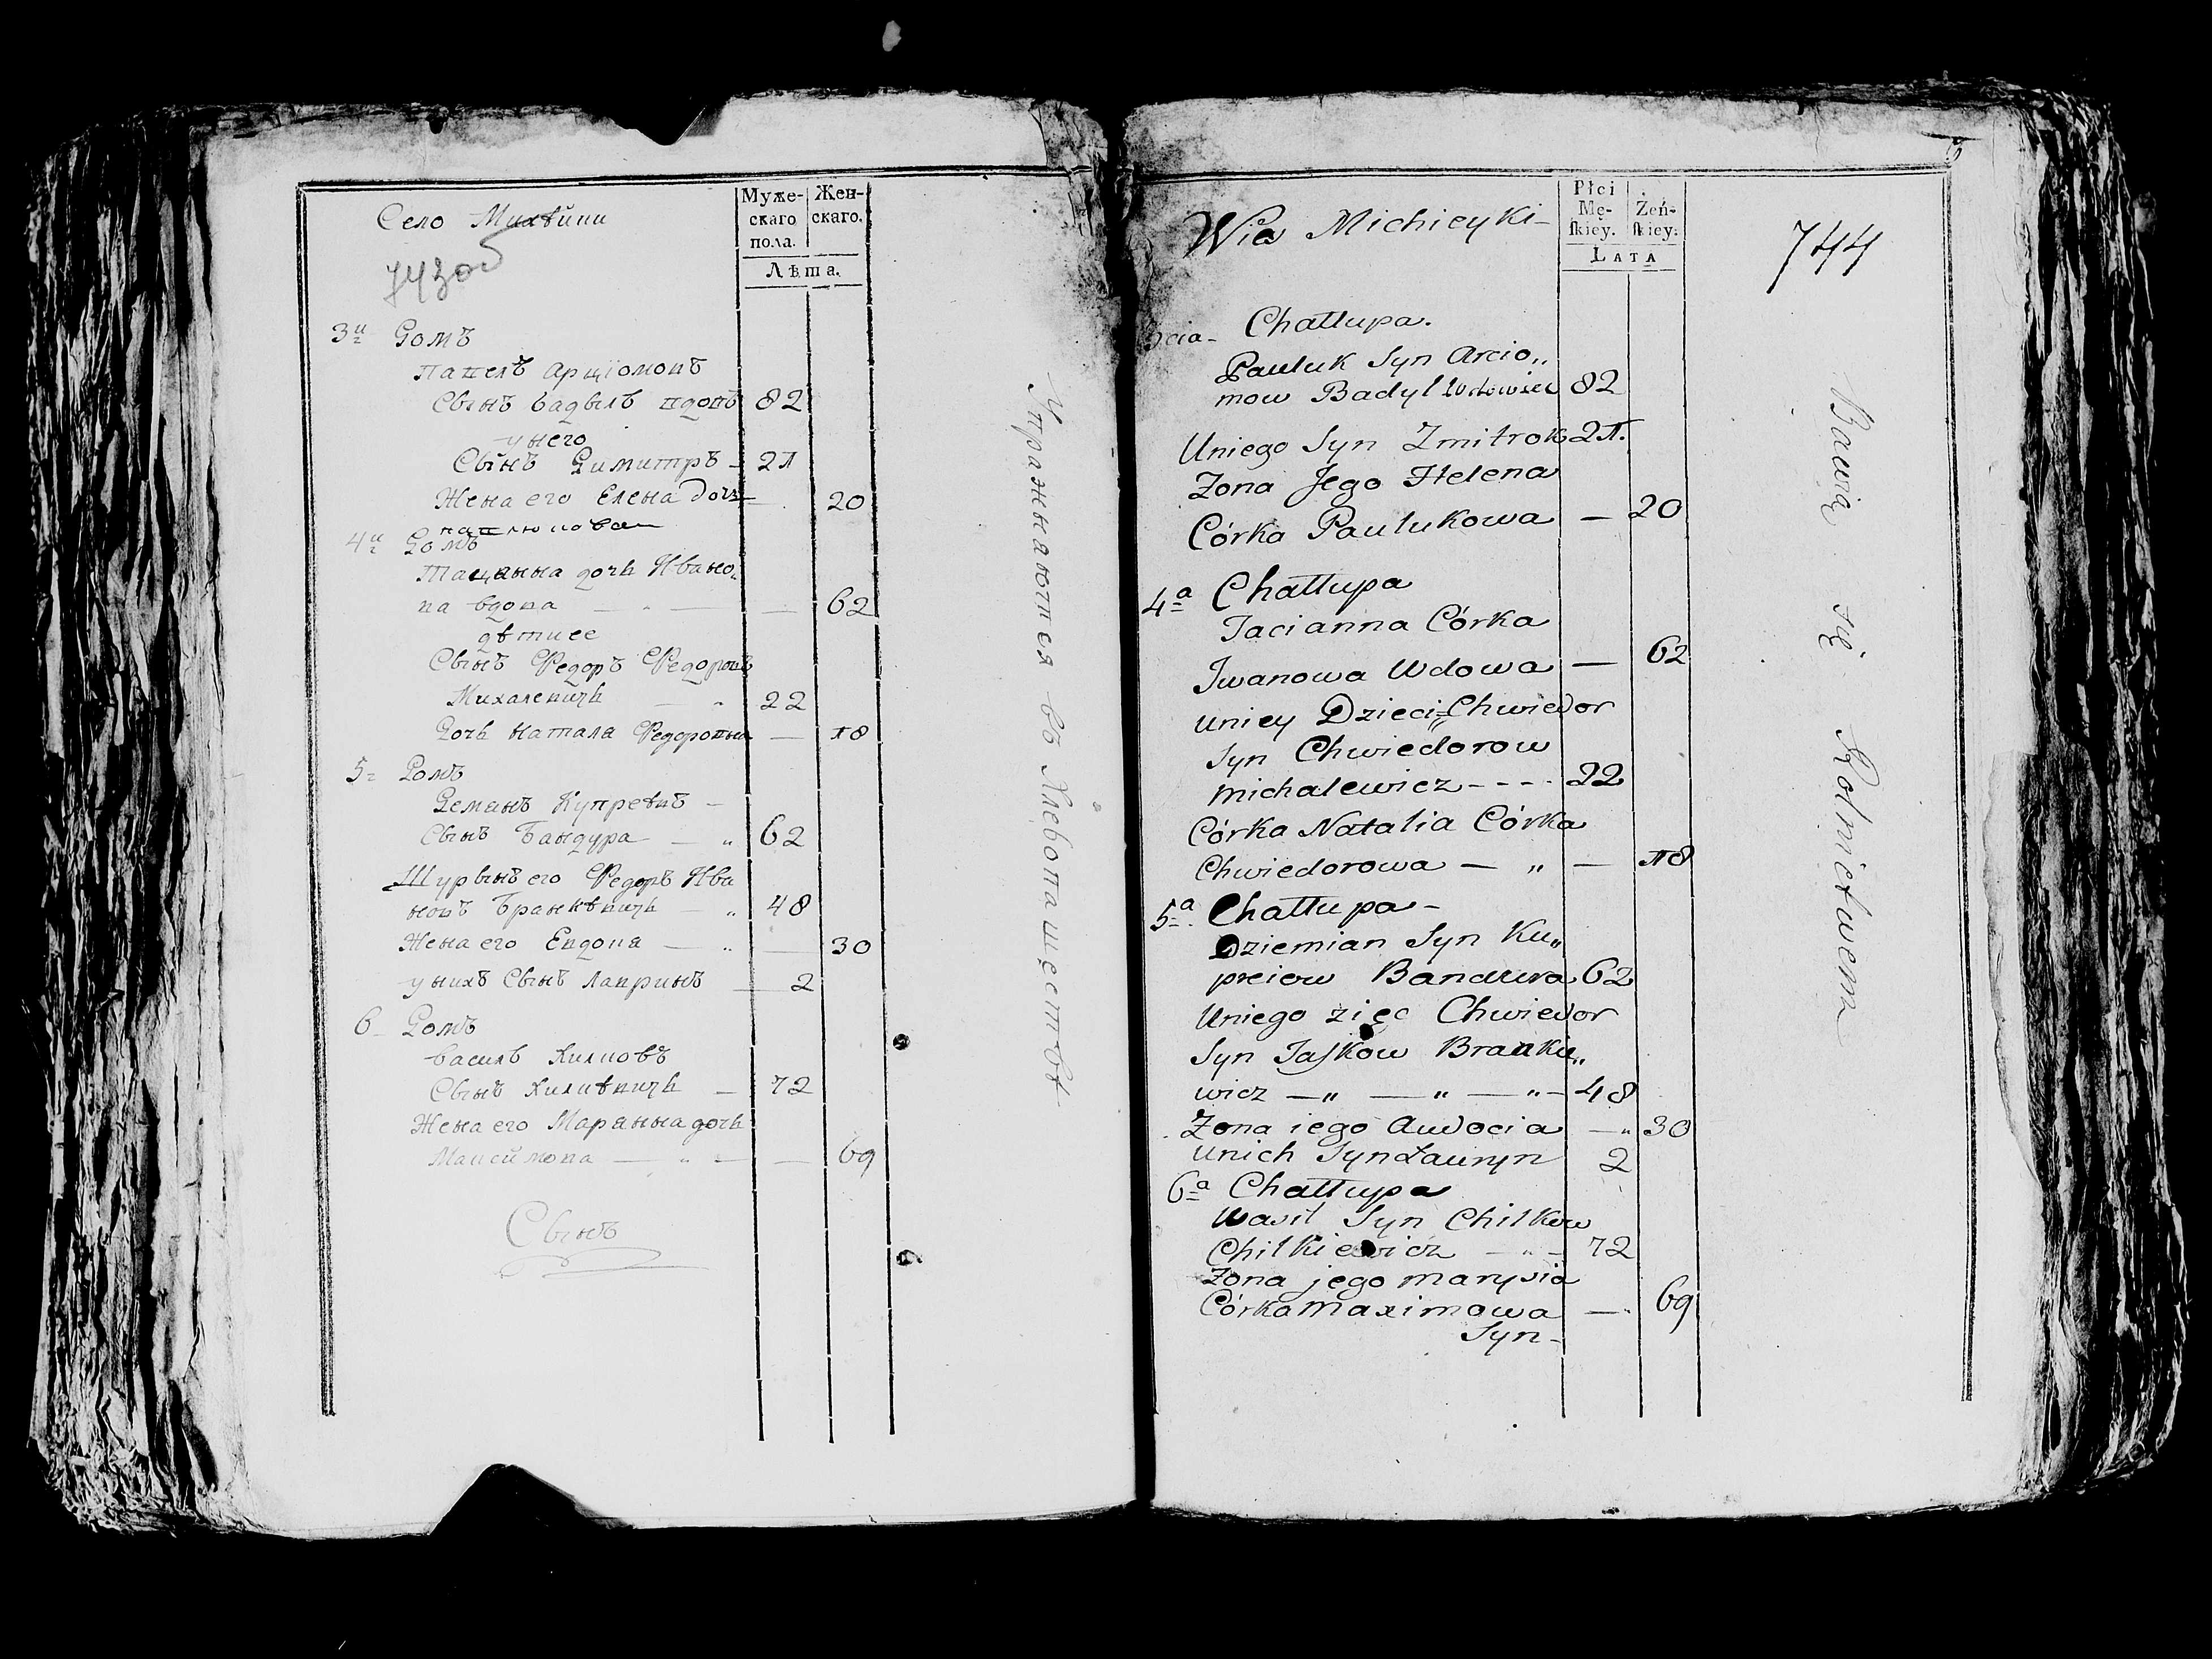 Село Михѣйки
743об
Муже-
скаго
пола.
Жен-
скаго.
Лѣта.
3й Домъ
Павелъ Арціомовъ
Сынъ Бадылъ вдовъ 82
у него
Сынъ Димитръ - 21
Жена его Елена дочь — 20
павлюкова
4й Домъ
Тацяньна дочь Ивано„
ва вдова — — — 62
дѣти ее
Сынъ Федоръ Федоровъ
Михалевичь — 22
Дочь Натала Федоровна — 18
5 Домъ
Демянъ Купреевъ -
Сынъ Бандура — „ 62
Шурынъ его Федоръ Ива
новъ Бранкевичь — „ 48
Жена его Евдоця — „ — 30
у нихъ Сынъ Лавринъ — 2
6 Домъ
Василь Хилковъ
Сынъ Хилкевичь — 72
Жена его Маряньна дочь
Максимова — „ — — 69
Сынъ
Упражняются въ Хлебопашестве
Wieś Michieyki -
Płci
Mę-
skiey.
Żeń-
skiey.
LATA
744
3cia - Chałłupa.
Pauluk Syn Arcio„
mow Badyl Wdowiec 82
Uniego Syn Zmitrok 21.
Żona Jego Helena
Córka Paulukowa — 20
4a Chałłupa
Tacianna Córka
Jwanowa Wdowa — 62
uniey Dzieci Chwiedor
Syn Chwiedorow
Michalewicz - - - - 22
Córka Natalia Córka
Chwiedorowa — „ — 18
5a Chałłupa -
Dziemian Syn Ku„
preiow Bandura 62
Uniego zięc Chwiedor
Syn Jaśkow Branke„
wicz — „ — „ — „ - 48
Żona iego Awdocia — „ 30
unich Syn Ławryn 2
6a Chałłupa
Wasil Syn Chilkow
Chilkiewicz — „ - 72
Żona jego Marysia
Córka Maximowa — 69
Syn -
Bawią się Rolnictwem